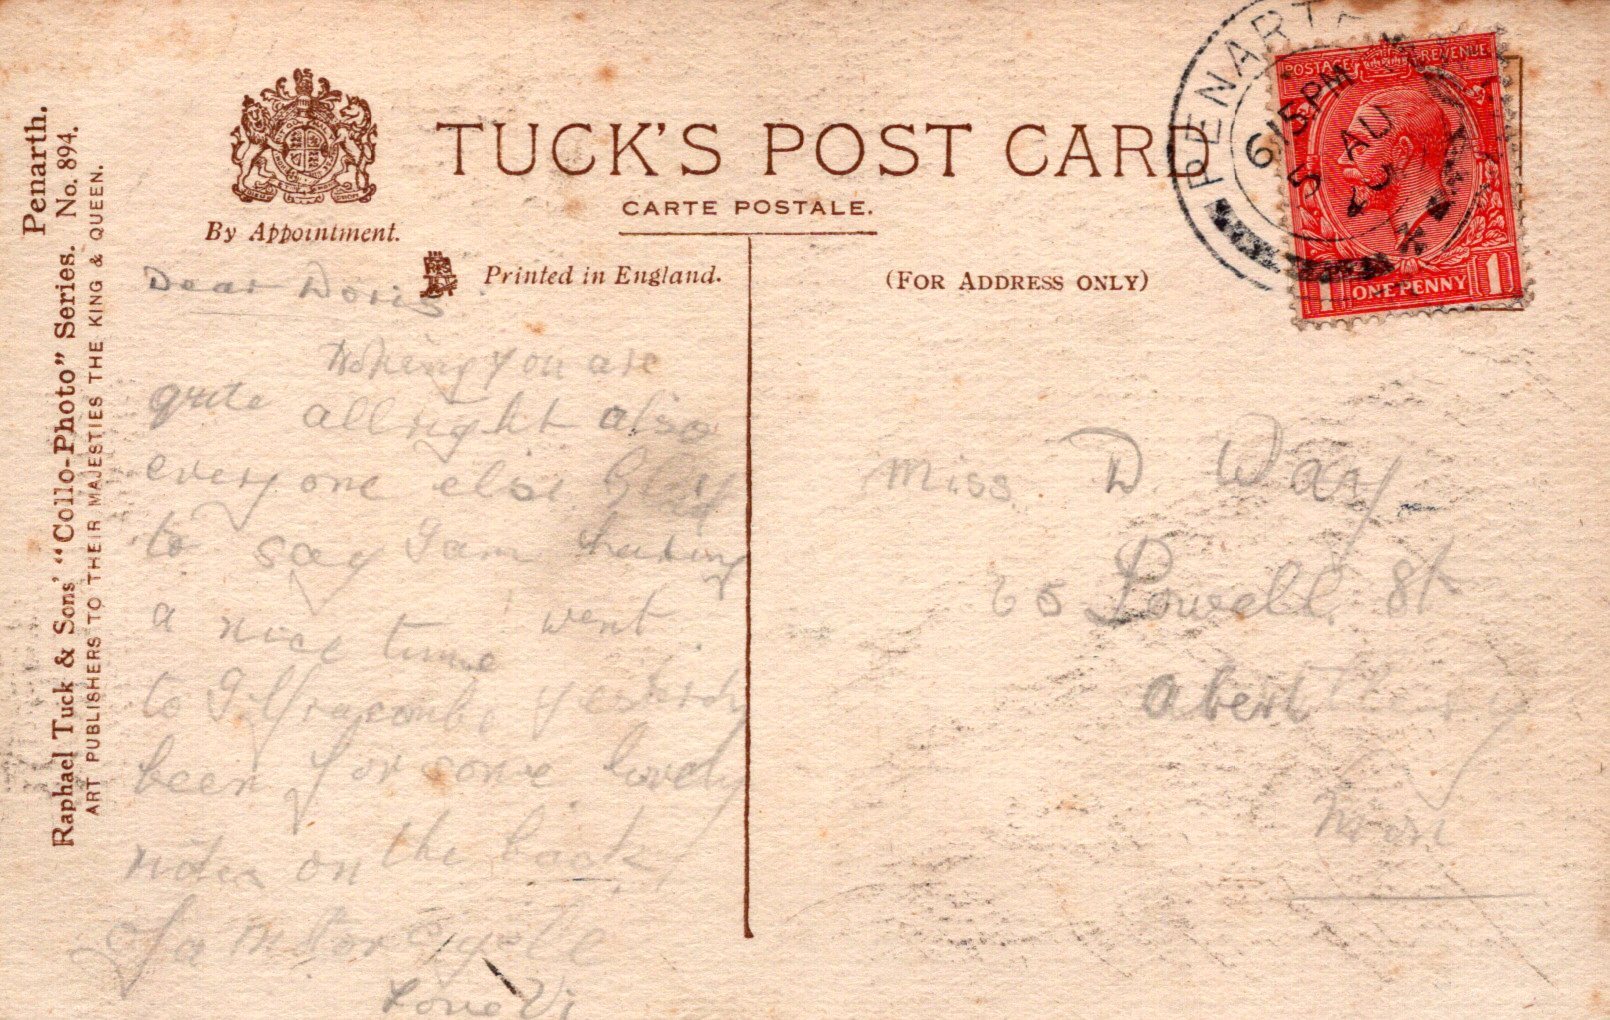 Penarth.
Raphael Tuck & Sons' "Collo-Photo" Series. No. 894.
ART PUBLISHERS TO THEIR MAJESTIES THE KING & QUEEN.
By Appointment.
TUCK'S POST CARD
CARTE POSTALE.
Printed in England.
(FOR ADDRESS ONLY)
PENARTH
6 15 PM
5 AU
POSTAGE REVENUE
1 ONE PENNY 1
Dear Doris
Hoping you are
quite allright also
everyone else Glad
to say I am having
a nice time went
to Ilfracombe yesterdy
been for some lovely
rides on the back
of a Motor Cycle
Love Vi
Miss D. Way
65 Powell St
Abertillery
Mon